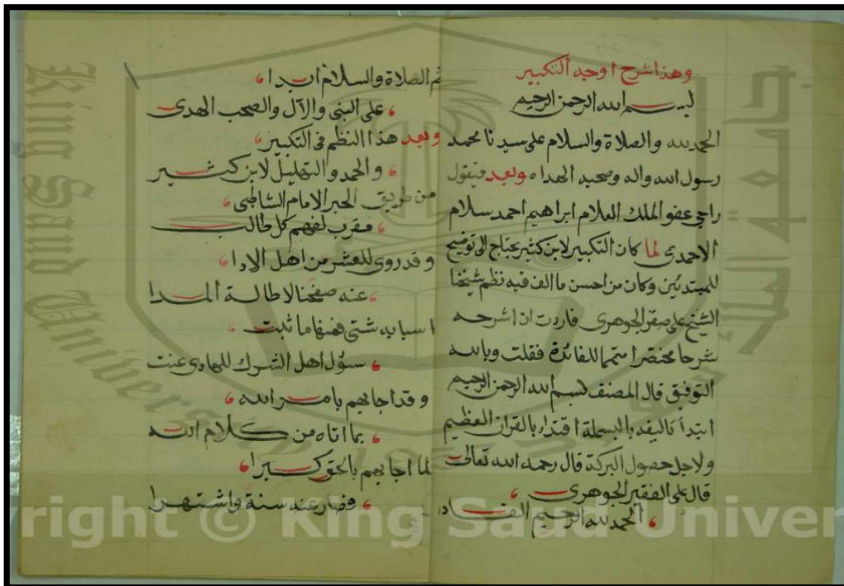 وهذا شرح اوجه التكبير
بسم الله الرحمن الرحيم
الحمد لله والصلاة والسلام على سيدنا محمد
رسول الله واله وصحبه الهداه وبعد فيقول
راجي عفو الملك العلام ابراهيم احمد سلام
الاحمدى لما كان التكبير لابن كثير يحتاج الى توضيح
للمبتدئين وكان من احسن ما الف فيه نظم شيخنا
الشيخ على صقر الجوهرى فاردت ان اشرحه
شرحا مختصرا متمما للفائدة فقلت وبالله
التوفيق قال المصنف بسم الله الرحمن الرحيم
ابتدأ تاليفه بالبسملة اقتداء بالقران العظيم
ولاجل حصول البركة قال رحمه الله تعالى
قال على الفقير الجوهرى
الحمد لله الرحيم
ثم الصلاة والسلام ابدا
على النبى والآل والصحب الهدى
وبعد هذا النظم فى التكبير
والحمد والتهليل لابن كثير
من طريق الحبر الامام الشاطبى
مقرب لفهم كل طالب
وقد روى للعشر من اهل الادا
عنه صفحنا لاطالة المدا
اسبابه شتى فمنها ما ثبت
سؤل اهل الشرك للهادى عنت
وقد اجابهم بامر الله
بما اتاه من كلام الله
لما اجابهم بالحق كبرا
فصار عنه سنة واشتهرا
جامعة الملك
King Saud University
right © King Saud Univer